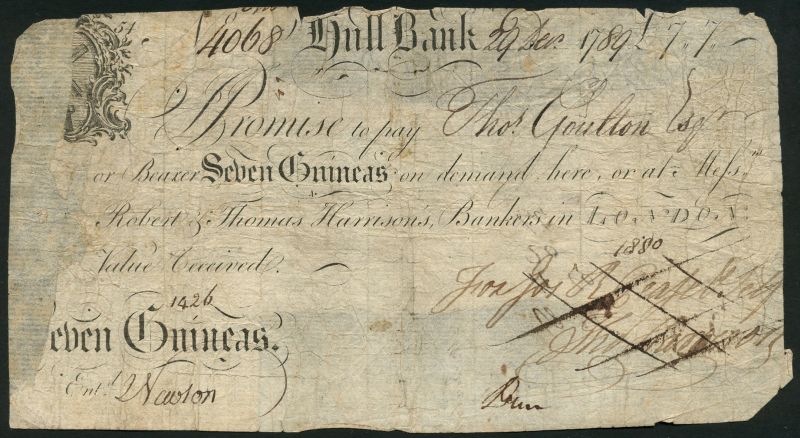 51 4068 Hull Bank 29 Decr. 1789 £7"7"
I Promise to pay Thos. Goulton Esqr
or Bearer Seven Guineas on demand here, or at Messrs.
Robert & Thomas Harrison's, Bankers in LONDON
Value Received.
1880
For Jos R
1426
Seven Guineas.
Entd. Newton